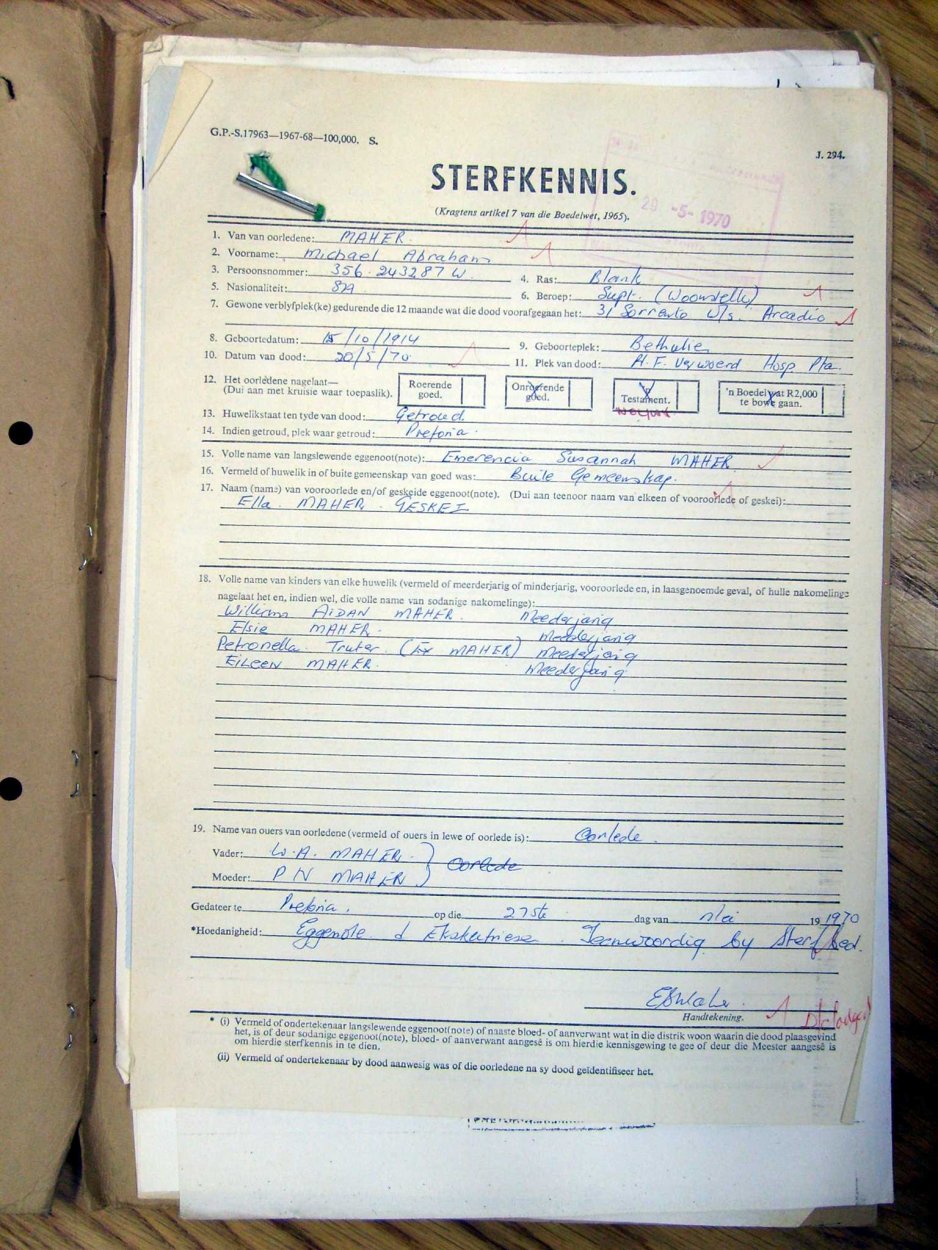 G.P.-S.17963—1967-68—100,000. S.
J. 294.
STERFKENNIS.
28 -5- 1970
(Kragtens artikel 7 van die Boedelwet, 1965).
1. Van van oorledene: MAHER.
2. Voorname: Michael Abraham
3. Persoonsnommer: 356.243287 W. 4. Ras: Blank
5. Nasionaliteit: SA 6. Beroep: Supt. (Woonstelle)
7. Gewone verblyfplek(ke) gedurende die 12 maande wat die dood voorafgegaan het: 31 Sorrento W/s. Arcadia
8. Geboortedatum: 15/10/1914 9. Geboorteplek: Bethulie
10. Datum van dood: 20/5/70 11. Plek van dood: H.F. Verwoerd Hosp Pta.
12. Het oorledene nagelaat— Roerende goed. Onroerende goed. 'n Testament. 'n Boedel wat R2,000 te bowe gaan.
(Dui aan met kruisie waar toepaslik).
13. Huwelikstaat ten tyde van dood: Getroud
14. Indien getroud, plek waar getroud: Pretoria.
15. Volle name van langslewende eggenoot(note): Emerencia Susannah MAHER
16. Vermeld of huwelik in of buite gemeenskap van goed was: Buite Gemeenskap.
17. Naam (name) van vooroorlede en/of geskeide eggenoot(note). (Dui aan teenoor naam van elkeen of vooroorlede of geskei):
Ella MAHER. GESKEI
18. Volle name van kinders van elke huwelik (vermeld of meerderjarig of minderjarig, vooroorlede en, in laasgenoemde geval, of hulle nakomelinge
nagelaat het en, indien wel, die volle name van sodanige nakomelinge):
William AIDAN MAHER. Meederjarig
Elsie MAHER. Meederjarig
Petronella Truter (Ex MAHER) Meederjarig
EILEEN MAHER. Meederjarig
19. Name van ouers van oorledene (vermeld of ouers in lewe of oorlede is): Oorlede.
Vader: W.A. MAHER. } Oorlede
Moeder: P N MAHER
Gedateer te Pretoria. op die 27ste dag van Mei 19 1970
*Hoedanigheid: Eggenote & Eksekutriese. Teenwoordig by Sterfbed.
Handtekening.
* (i) Vermeld of ondertekenaar langslewende eggenoot(note) of naaste bloed- of aanverwant wat in die distrik woon waarin die dood plaasgevind
het, is of deur sodanige eggenoot(note), bloed- of aanverwant aangesê is om hierdie kennisgewing te gee of deur die Meester aangesê is
om hierdie sterfkennis in te dien.
(ii) Vermeld of ondertekenaar by dood aanwesig was of die oorledene na sy dood geïdentifiseer het.